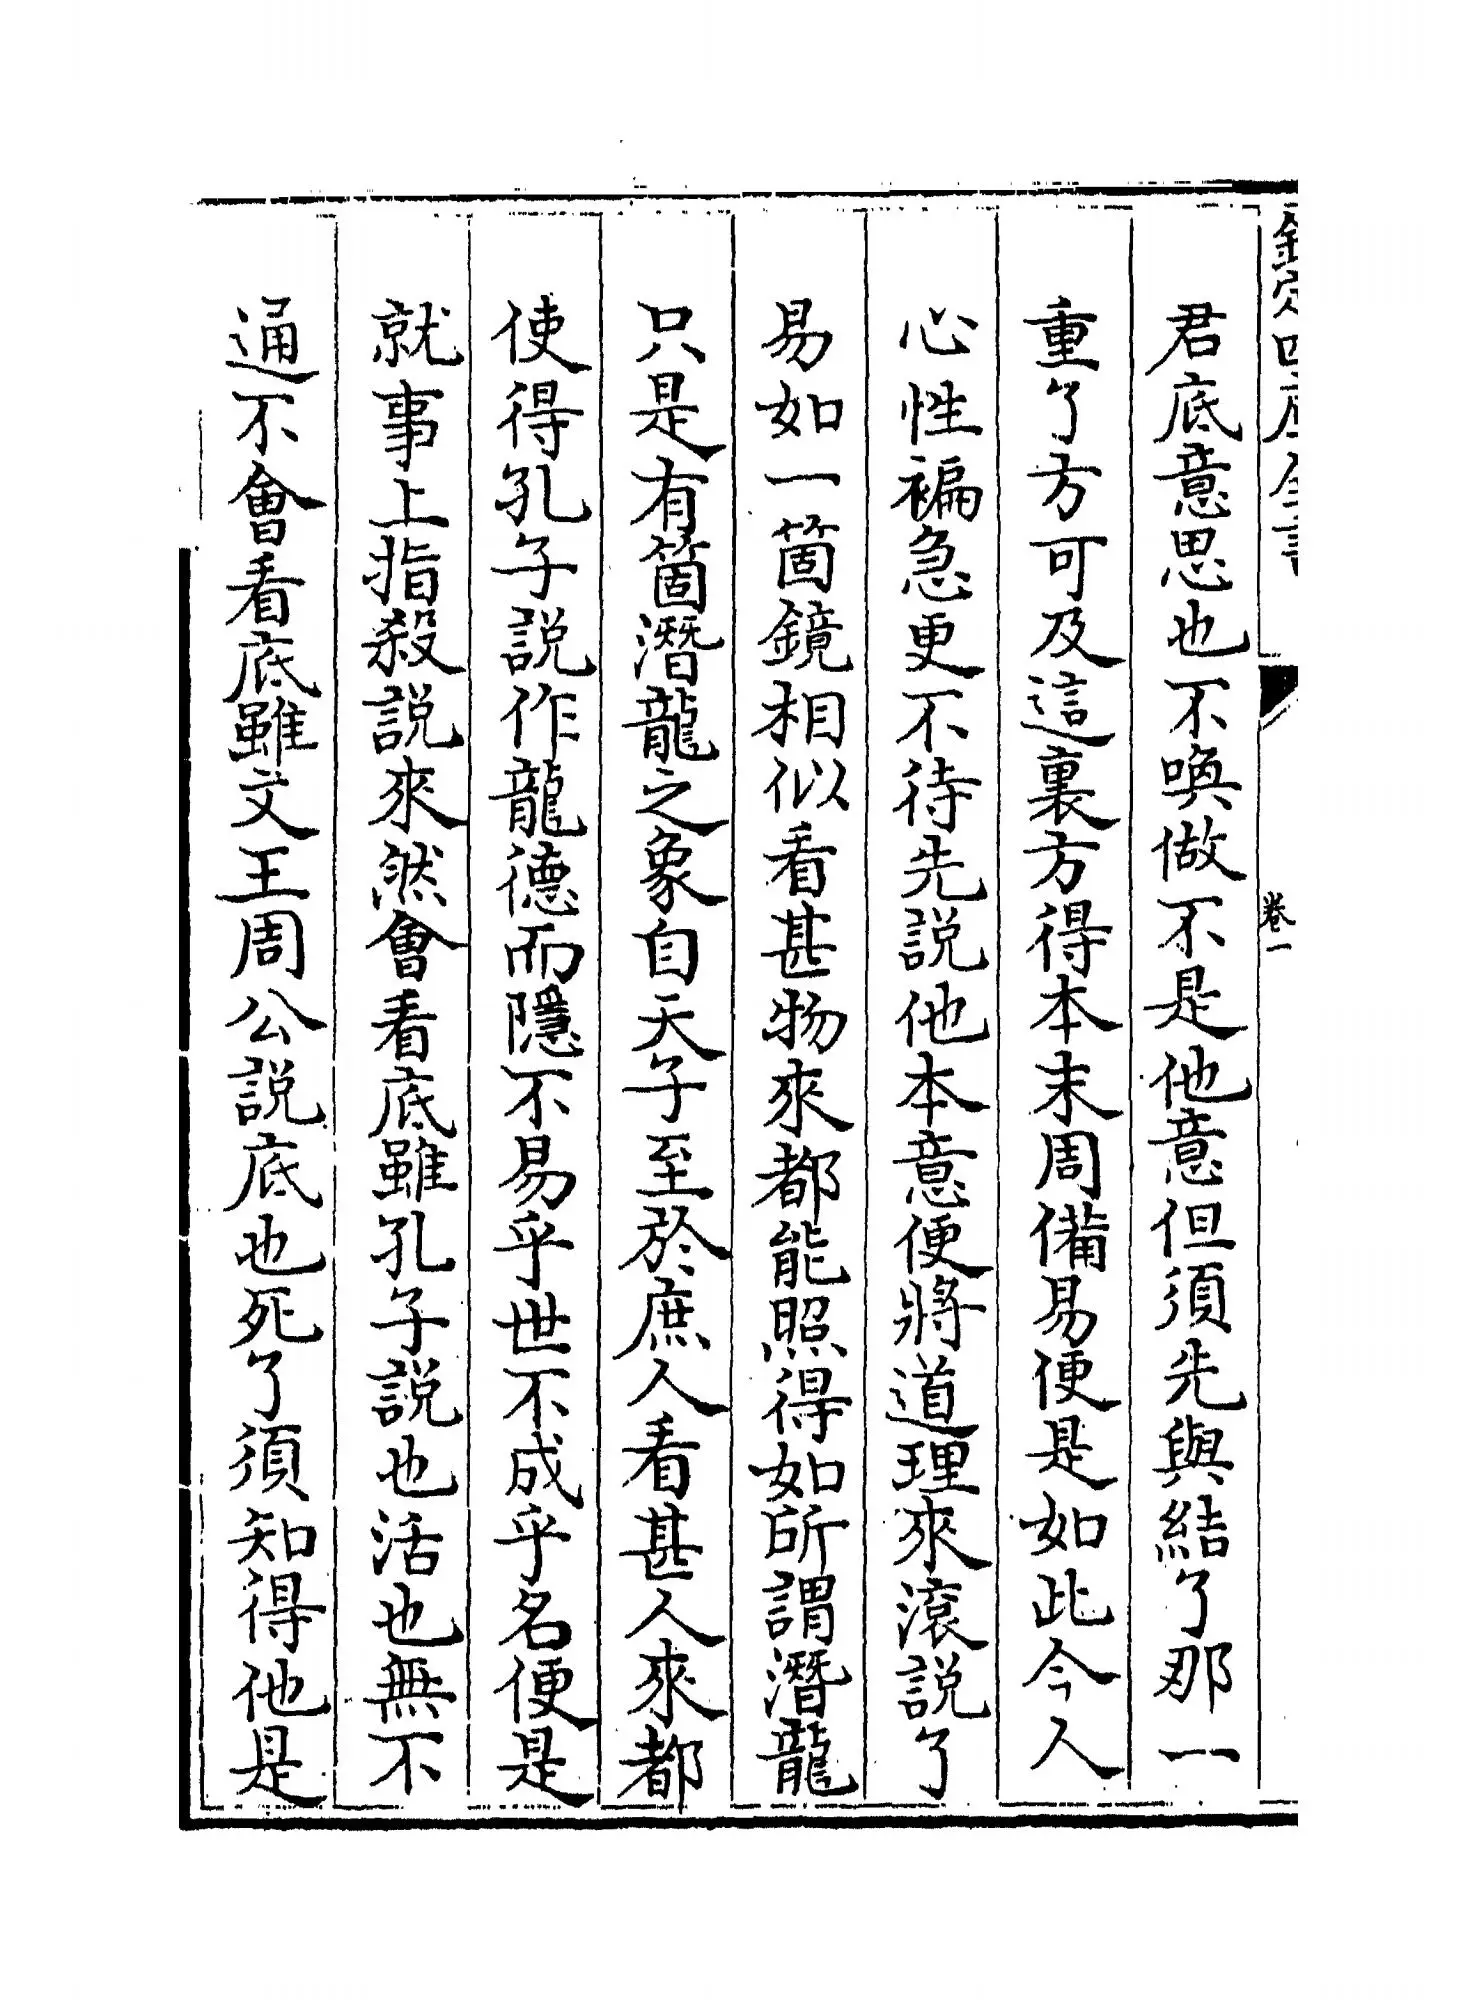 欽定四庫全書
卷一
君底意思也不喚做不是他意但須先與結了那一
重了方可及這裏方得本末周備易便是如此今人
心性褊急更不待先說他本意便將道理來滾說了
易如一箇鏡相似看甚物來都能照得如所謂潛龍
只是有箇潛龍之象自天子至於庶人看甚人來都
使得孔子說作龍德而隱不易乎世不成乎名便是
就事上指殺說來然會看底雖孔子說也活也無不
通不會看底雖文王周公說底也死了須知得他是